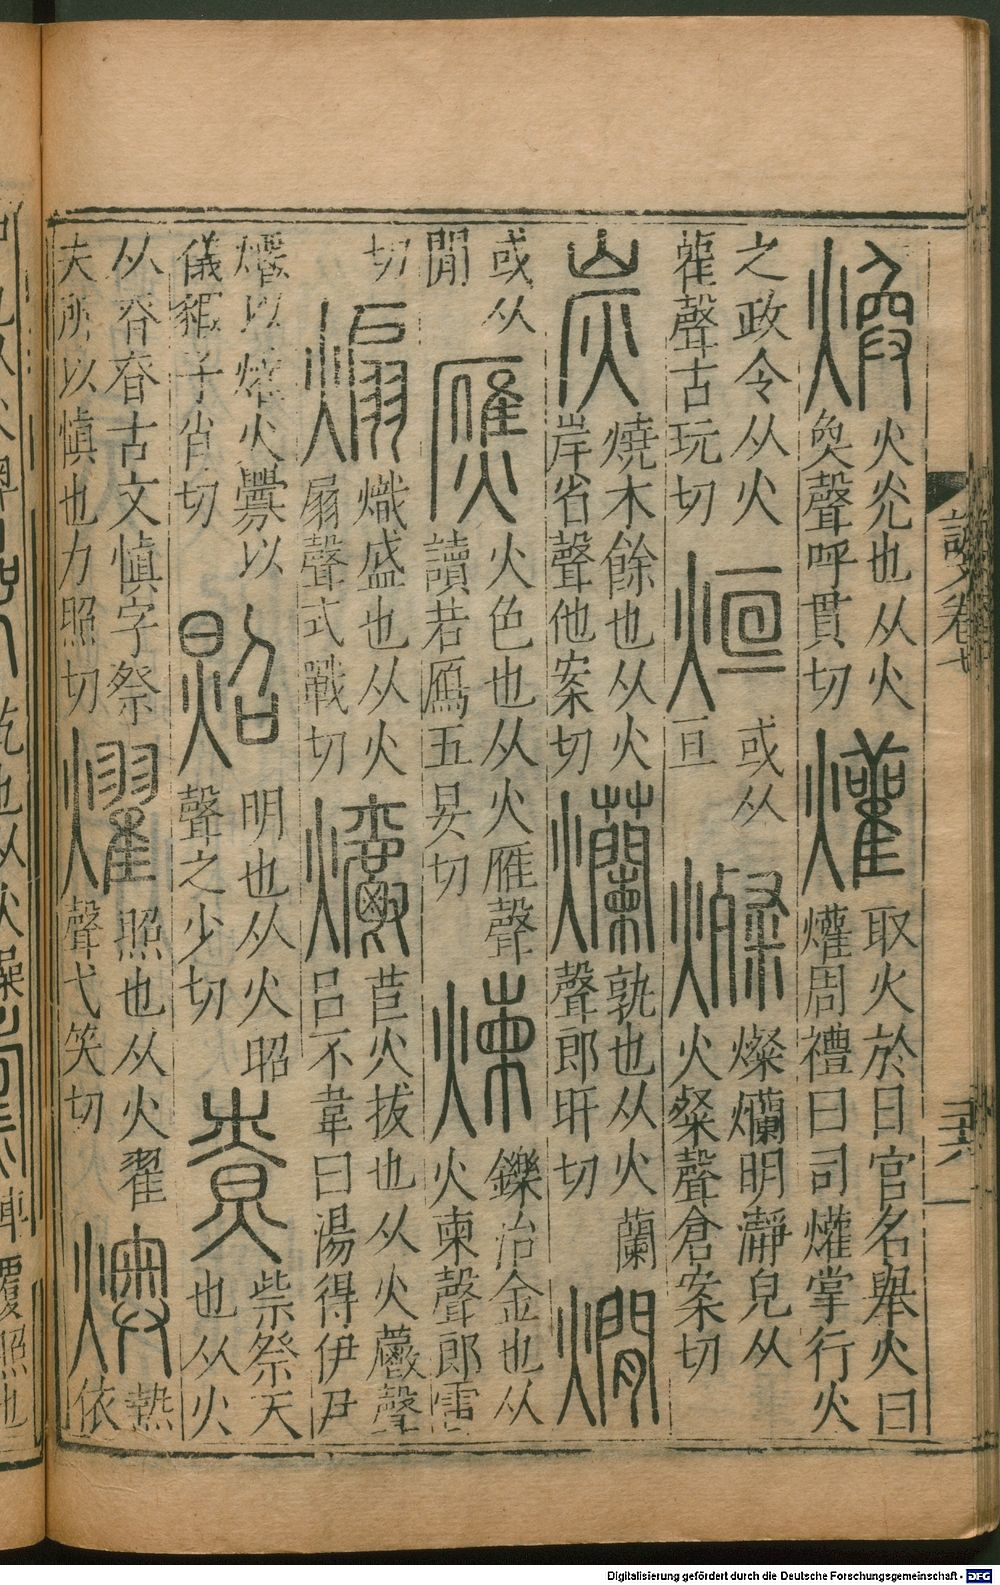 說文卷七
煥火光也从火奐聲呼貫切爟取火於日官名舉火曰爟周禮曰司爟掌行火
之政令从火雚聲古玩切烜或从亘燦燦爛明瀞皃从火粲聲倉案切
炭燒木餘也从火岸省聲他案切爛孰也从火蘭聲郎旰切燗
或从閒㷼火色也从火雁聲讀若鴈五旻切煉鑠治金也从火柬聲郎電
切煽熾盛也从火扇聲式戰切爝苣火拔也从火爵聲呂不韋曰湯得伊尹
爝以爟火釁以儀豭子肖切照明也从火昭聲之少切尞祡祭天也从火
从昚昚古文慎字祭夫所以慎也力照切燿照也从火翟聲弋笑切燠熱依
Digitalisierung gefördert durch die Deutsche Forschungsgemeinschaft - DFG